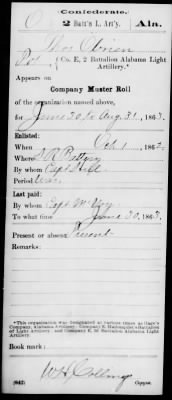 Confederate.
O 2 Batt'n L. Art'y. Ala.
Thos O'Brien
Pvt., Co. E, 2 Battalion Alabama Light Artillery.*
Appears on
Company Muster Roll
of the organization named above,
for June 30 to Aug 31, 1863.
Enlisted:
When Oct 1, 1862
Where
By whom Capt Hill
Period War
Last paid:
By whom Capt
To what time June 30, 1863.
Present or absent Present
Remarks:
*This organization was designated at various times as
Company, Alabama Artillery; Company E, Battalion
of Light Artillery and Company E, 2d Battalion Alabama Light
Artillery.
Book mark:
(642)
Copyist.